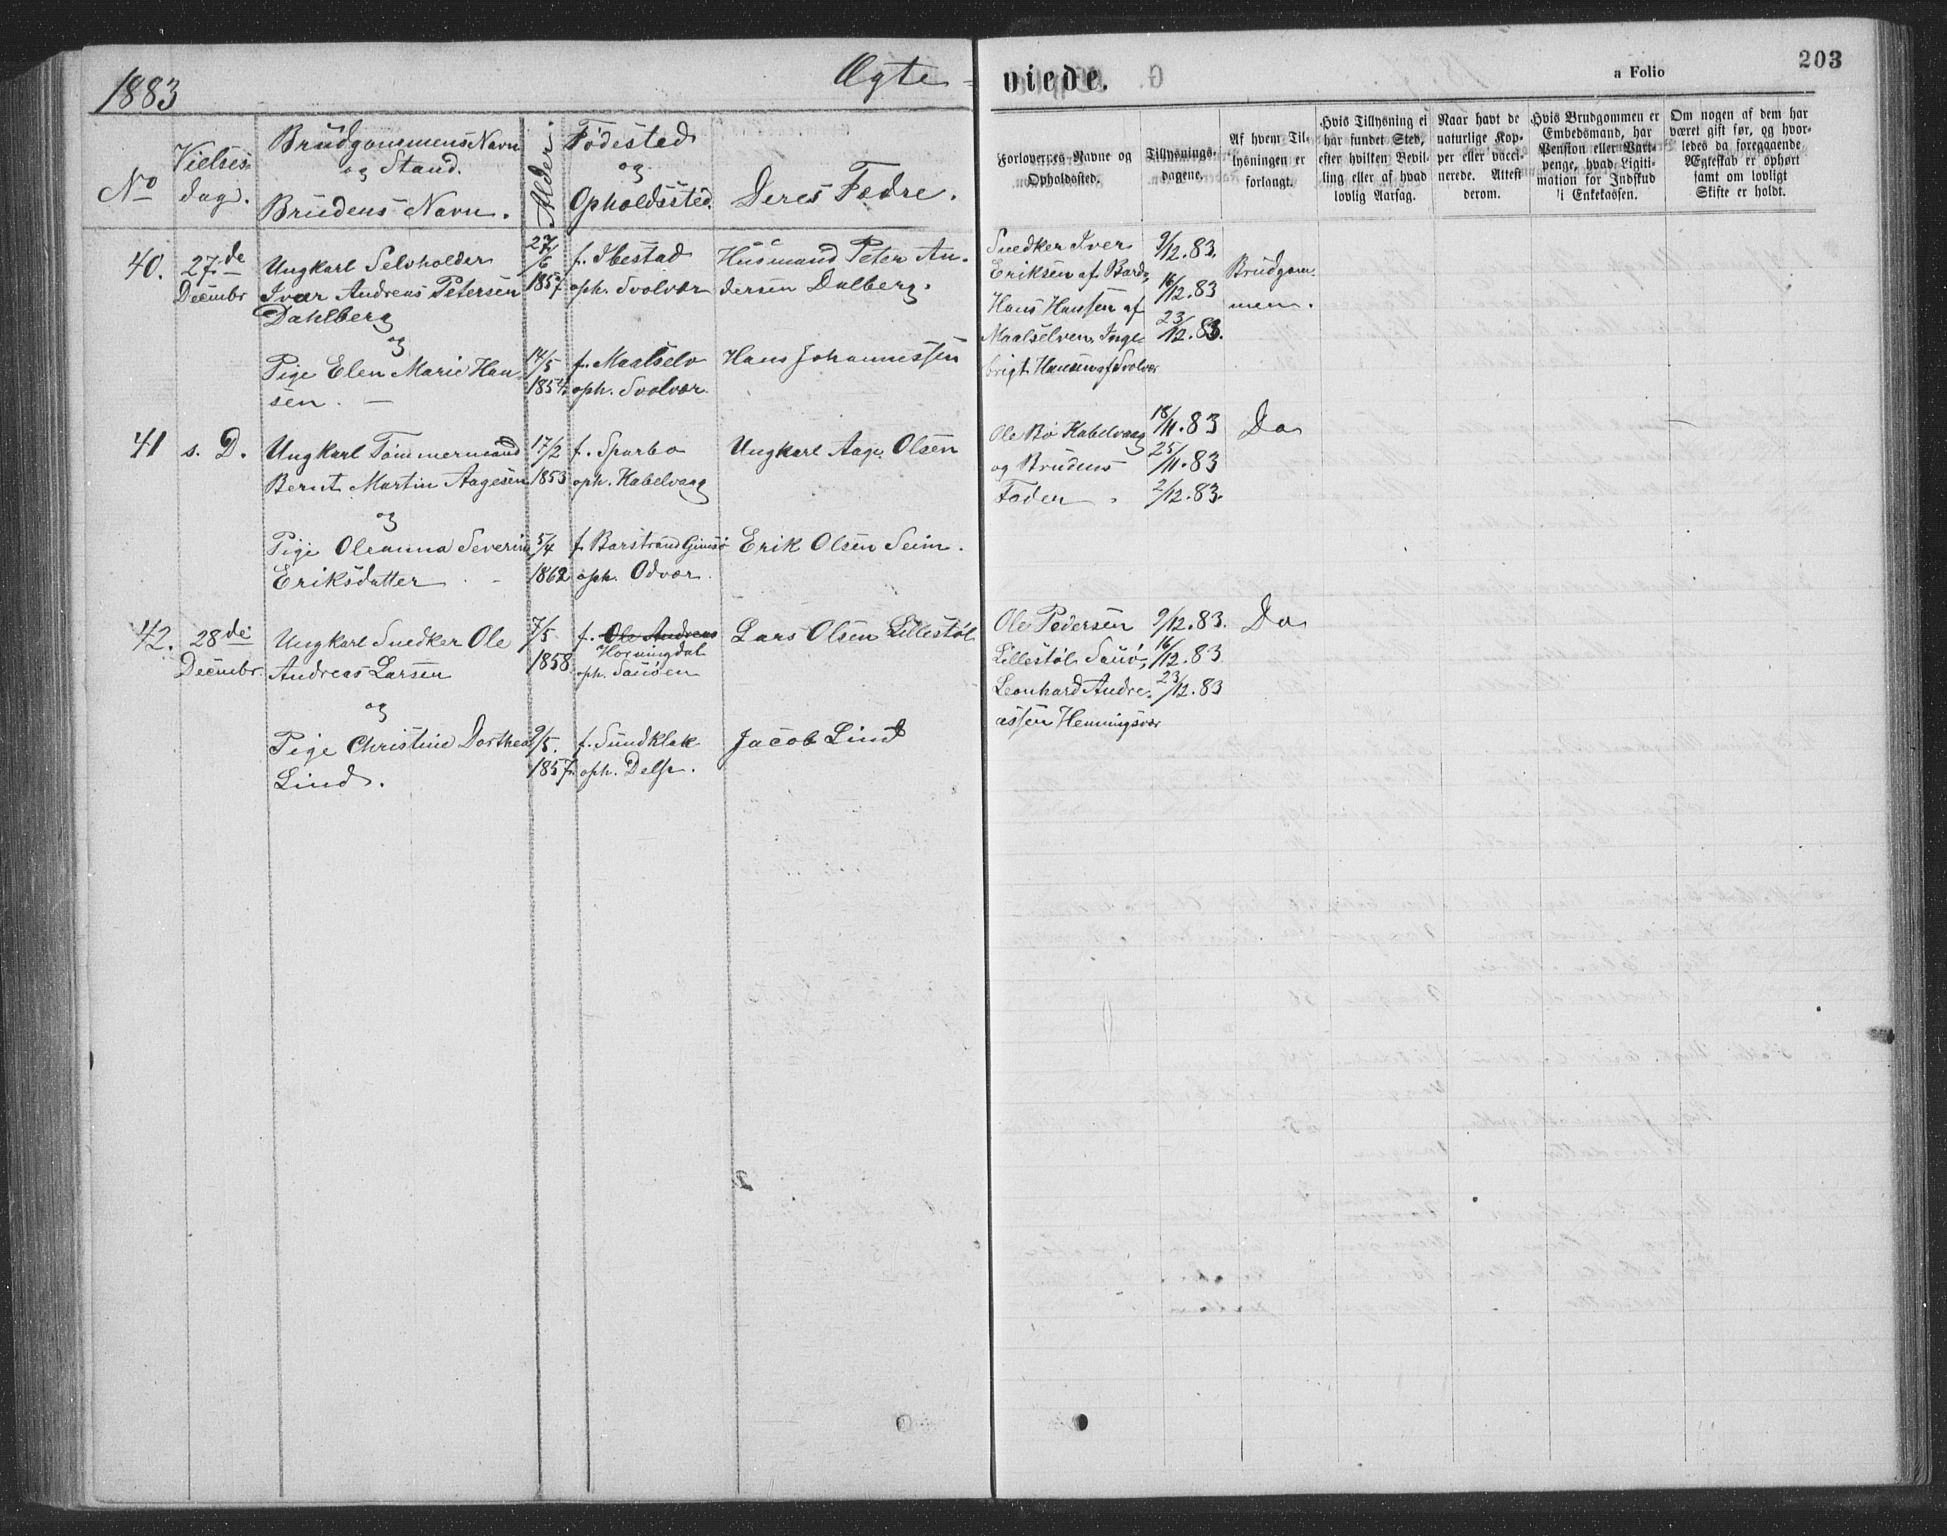 1883
Ægte-
viede.
a Folio
203
No
Vielses-
dag.
Brudgommens Navn
og Stand.
Brudens Navn.
Alder.
Fødested
og
Opholdssted.
Deres Fædre.
Forlovernes Navne og
Opholdssted.
Tillysnings-
dagene.
Af hvem Til-
lysningen er
forlangt.
Hvis Tillysning ei
har fundet Sted,
efter hvilken Bevil-
ling eller af hvad
lovlig Aarsag.
Naar havt de
naturlige Kop-
per eller vacci-
nerede. Attest
derom.
Hvis Brudgommen er
Embedsmand, har
Pension eller Vart-
penge, hvad Ligiti-
mation for Indskud
i Enkekassen.
Om nogen af dem har
været gift før, og hvor-
ledes da foregaaende
Ægteskab er ophørt
samt om lovligt
Skifte er holdt.
40.
27de
Decembr
Ungkarl Selvholder
Ivar Andreas Petersen
Dahlberg
og
Pige Elen Marie Han-
sen.
27/6
1857
14/5
1854.
f. Ibestad
oph. Svolvær
f. Maalselv
oph. Svolvær.
Husmand Peter An-
dersen Dalberg.
Hans Johannessen
Snedker Iver
Eriksen af Bardo,
Hans Hansen af
Maalselven, Inge-
brigt Hansen af Svolvær
9/12.83.
16/12.83
23/12.83.
Brudgom-
men.
41
s. D.
Ungkarl Tømmermand
Bernt Martin Aagesen
og
Pige Oleanna Severine
Eriksdatter
17/2
1853
5/4
1862
f. Sparbo
oph. Kabelvaag
f. Barstrand Gimsø
oph. Odvær.
Ungkarl Aage Olsen
Erik Olsen Seim.
Ole Bø Kabelvaag
og Brudens
Fader
18/11.83
25/11.83
2/12.83.
Do
42.
28de
Decembr.
Ungkarl Snedker Ole
Andreas Larsen
og
Pige Christine Dorthea
Lind.
7/5
1858.
9/5.
1857.
f. Ole Andreas
Horningdal
oph. Sauøen
f. Sundklak
oph. Delp.
Lars Olsen Lillestøl
Jacob Lind
Ole Pedersen
Lillestøl Sauø,
Leonhard Andre-
assen Henningsvær
9/12.83.
16/12.83.
23/12.83
Do